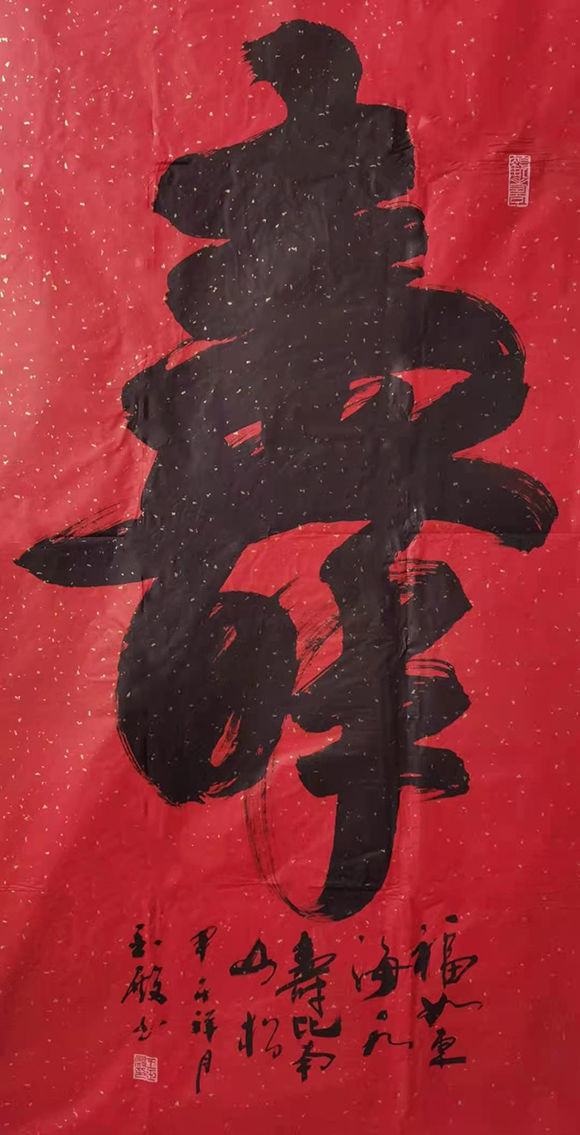 壽
福如东
海水
壽比南
山松
甲辰祥月
玉殿书